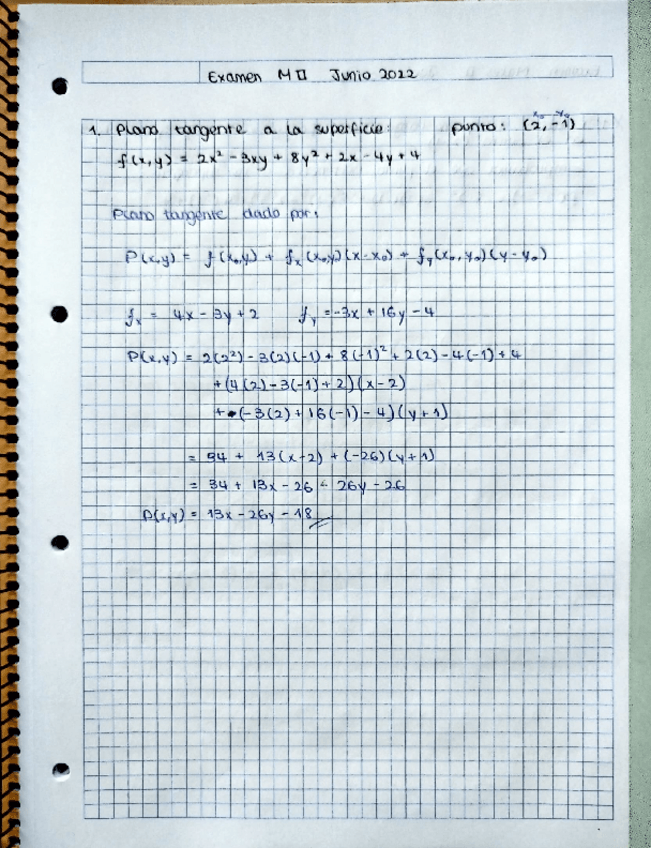 Examen M II Junio 2022
1. Plano tangente a la superficie: punto: (2, -1)
x₀ y₀
f(x,y) = 2x² - 3xy + 8y² + 2x - 4y + 4
Plano tangente dado por:
P(x,y) = f(x₀,y₀) + fₓ(x₀,y₀)(x-x₀) + fᵧ(x₀,y₀)(y-y₀)
fₓ = 4x - 3y + 2 fᵧ = -3x + 16y - 4
P(x,y) = 2(2²) - 3(2)(-1) + 8(-1)² + 2(2) - 4(-1) + 4
+ (4(2) - 3(-1) + 2)(x-2)
+ (-3(2) + 16(-1) - 4)(y+1)
= 34 + 13(x-2) + (-26)(y+1)
= 34 + 13x - 26 - 26y - 26
P(x,y) = 13x - 26y - 18